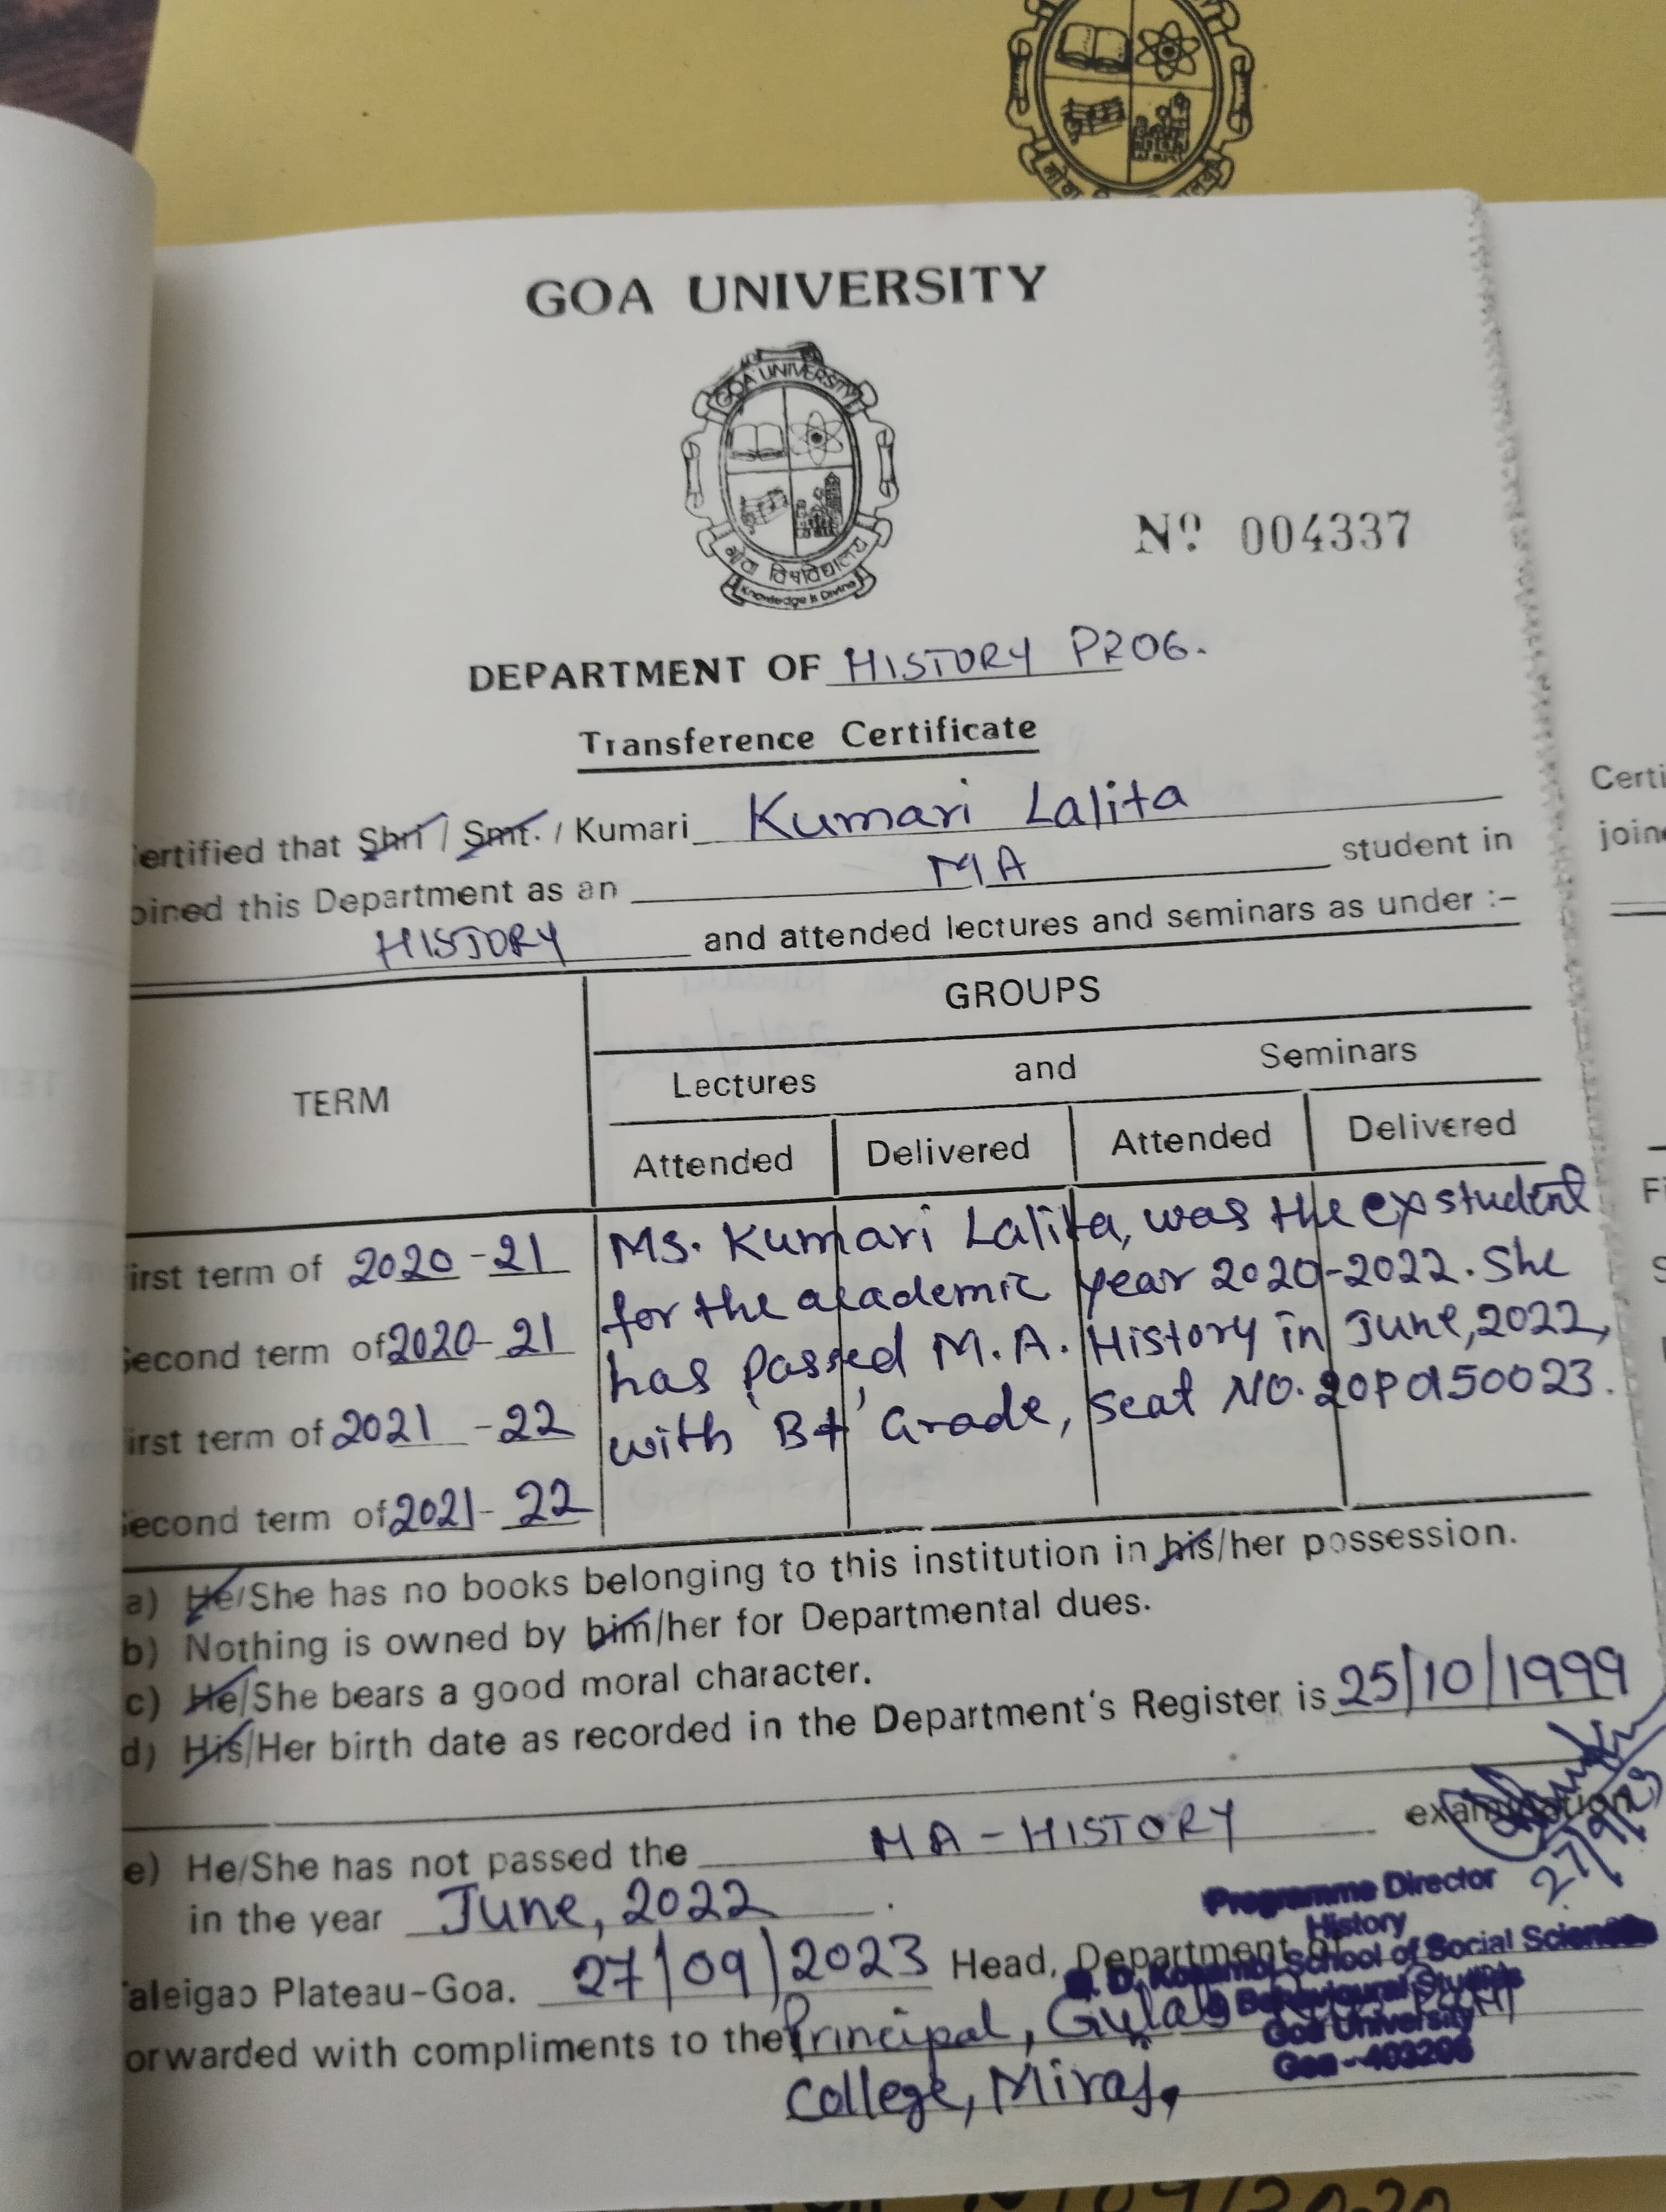 गोवा
GOA UNIVERSITY
GOA UNIVERSITY
गोवा विश्वविद्यालय
Knowledge is Divine
Nº 004337
DEPARTMENT OF HISTORY PROG.
Transference Certificate
ertified that Shri / Smt. / Kumari Kumari Lalita
oined this Department as an MA student in
HISTORY and attended lectures and seminars as under :-
TERM
GROUPS
Lectures and Seminars
Attended Delivered Attended Delivered
irst term of 2020-21
econd term of 2020-21
irst term of 2021-22
econd term of 2021-22
Ms. Kumari Lalita, was the exstudent
for the academic year 2020-2022. She
has passed M.A. History in June, 2022,
with 'B+' Grade, seat NO. 20PA150023.
a) He/She has no books belonging to this institution in his/her possession.
b) Nothing is owned by him/her for Departmental dues.
c) He/She bears a good moral character.
d) His/Her birth date as recorded in the Department's Register is 25/10/1999
e) He/She has not passed the MA-HISTORY examination
in the year June, 2022.
27/9/23
aleigao Plateau-Goa. 27/09/2023 Head, Department of
Programme Director
History
D. D. Kosambi School of Social Sciences
Behavioural Studies
Goa University
Goa - 403206
orwarded with compliments to the Principal, Gulab
College, Miraj,
Certi
join